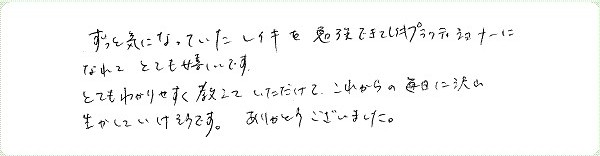 ずっと気になっていたレイキを勉強できてレイキプラクティショナーに
なれて とても嬉しいです。
とてもわかりやすく教えていただけて、これからの毎日に沢山
生かしていけそうです。 ありがとうございました。